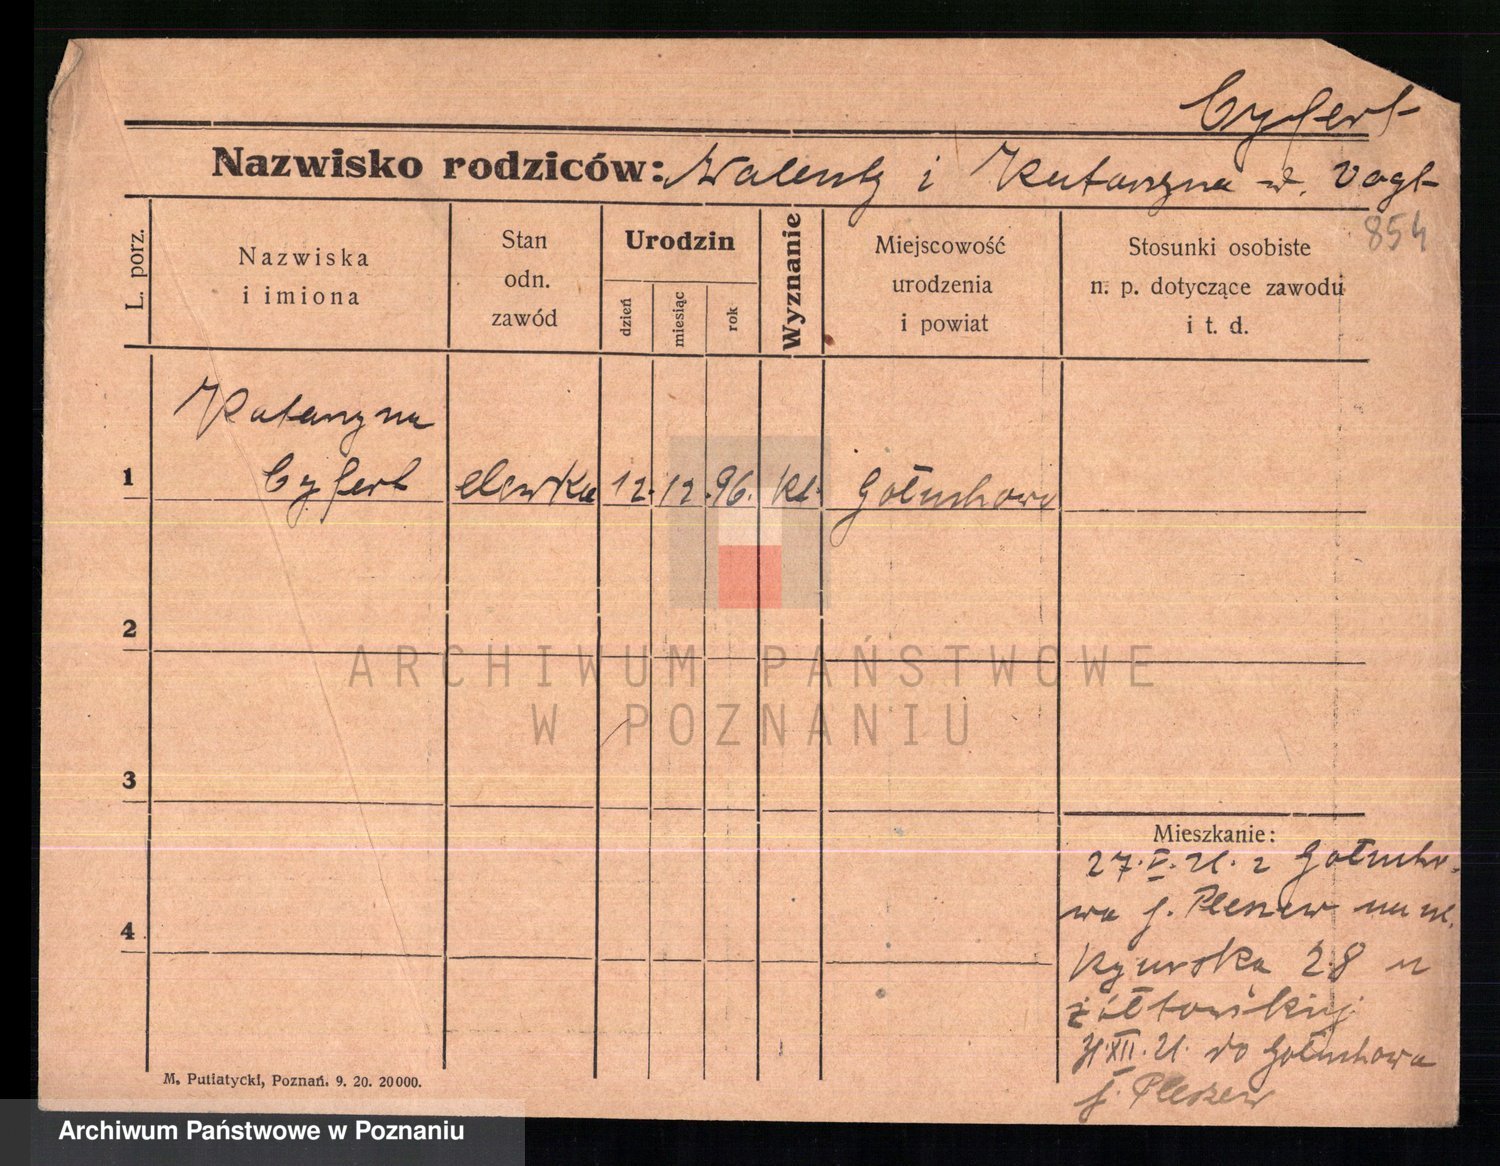 Cyfert
Nazwisko rodziców: Walenty i Katarzyna d. Vogt
854
L. porz.
Nazwiska
i imiona
Stan
odn.
zawód
Urodzin
dzień
miesiąc
rok
Wyznanie
Miejscowość
urodzenia
i powiat
Stosunki osobiste
n. p. dotyczące zawodu
i t. d.
Katarzyna
1 Cyfert elewka 12. 12. 96. kt. Gołuchowo
2
3
4
Mieszkanie:
27. 21. z Gołucho-
wa p. Pleszew na ul.
28 u
Żółtowskiej
XII. 21. do Gołuchowa
p. Pleszew
M. Putiatycki, Poznań. 9. 20. 20000.
ARCHIWUM PAŃSTWOWE
W POZNANIU
Archiwum Państwowe w Poznaniu